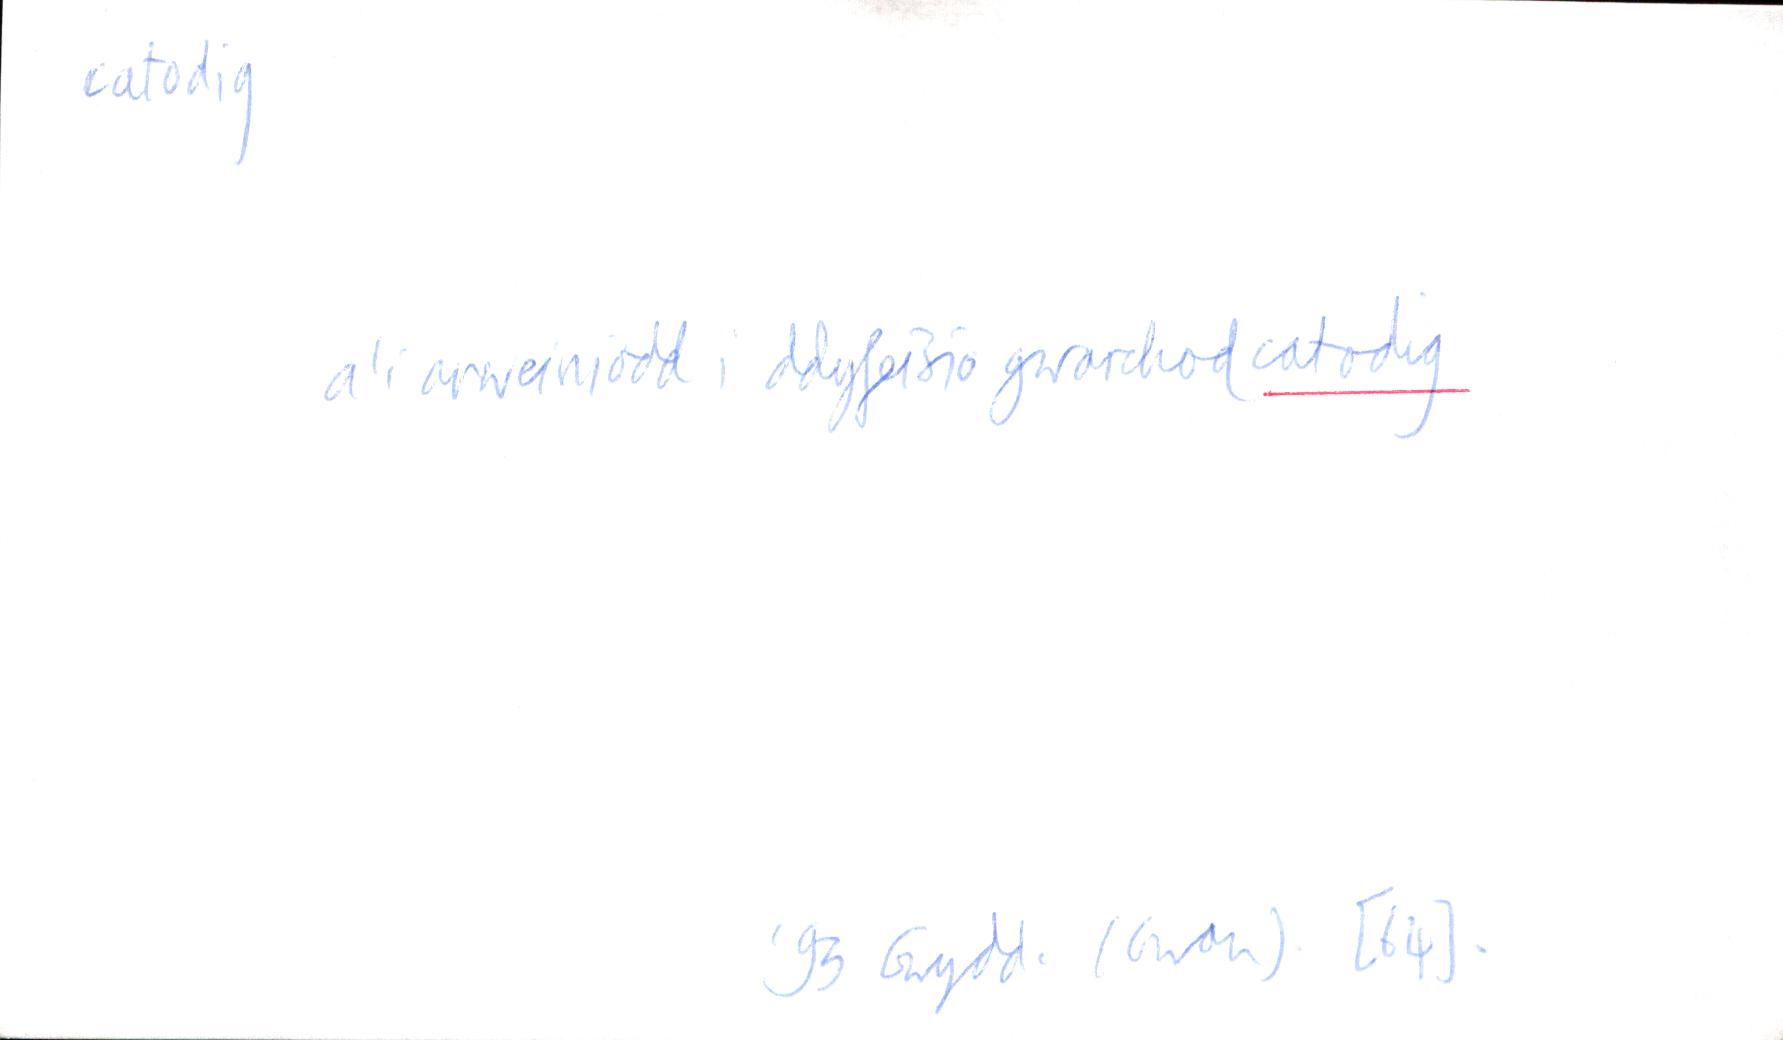 catodig
a'i arweiniodd i ddyfeisio gwarchod catodig
'93 Gwydd. (Gwan). [64].